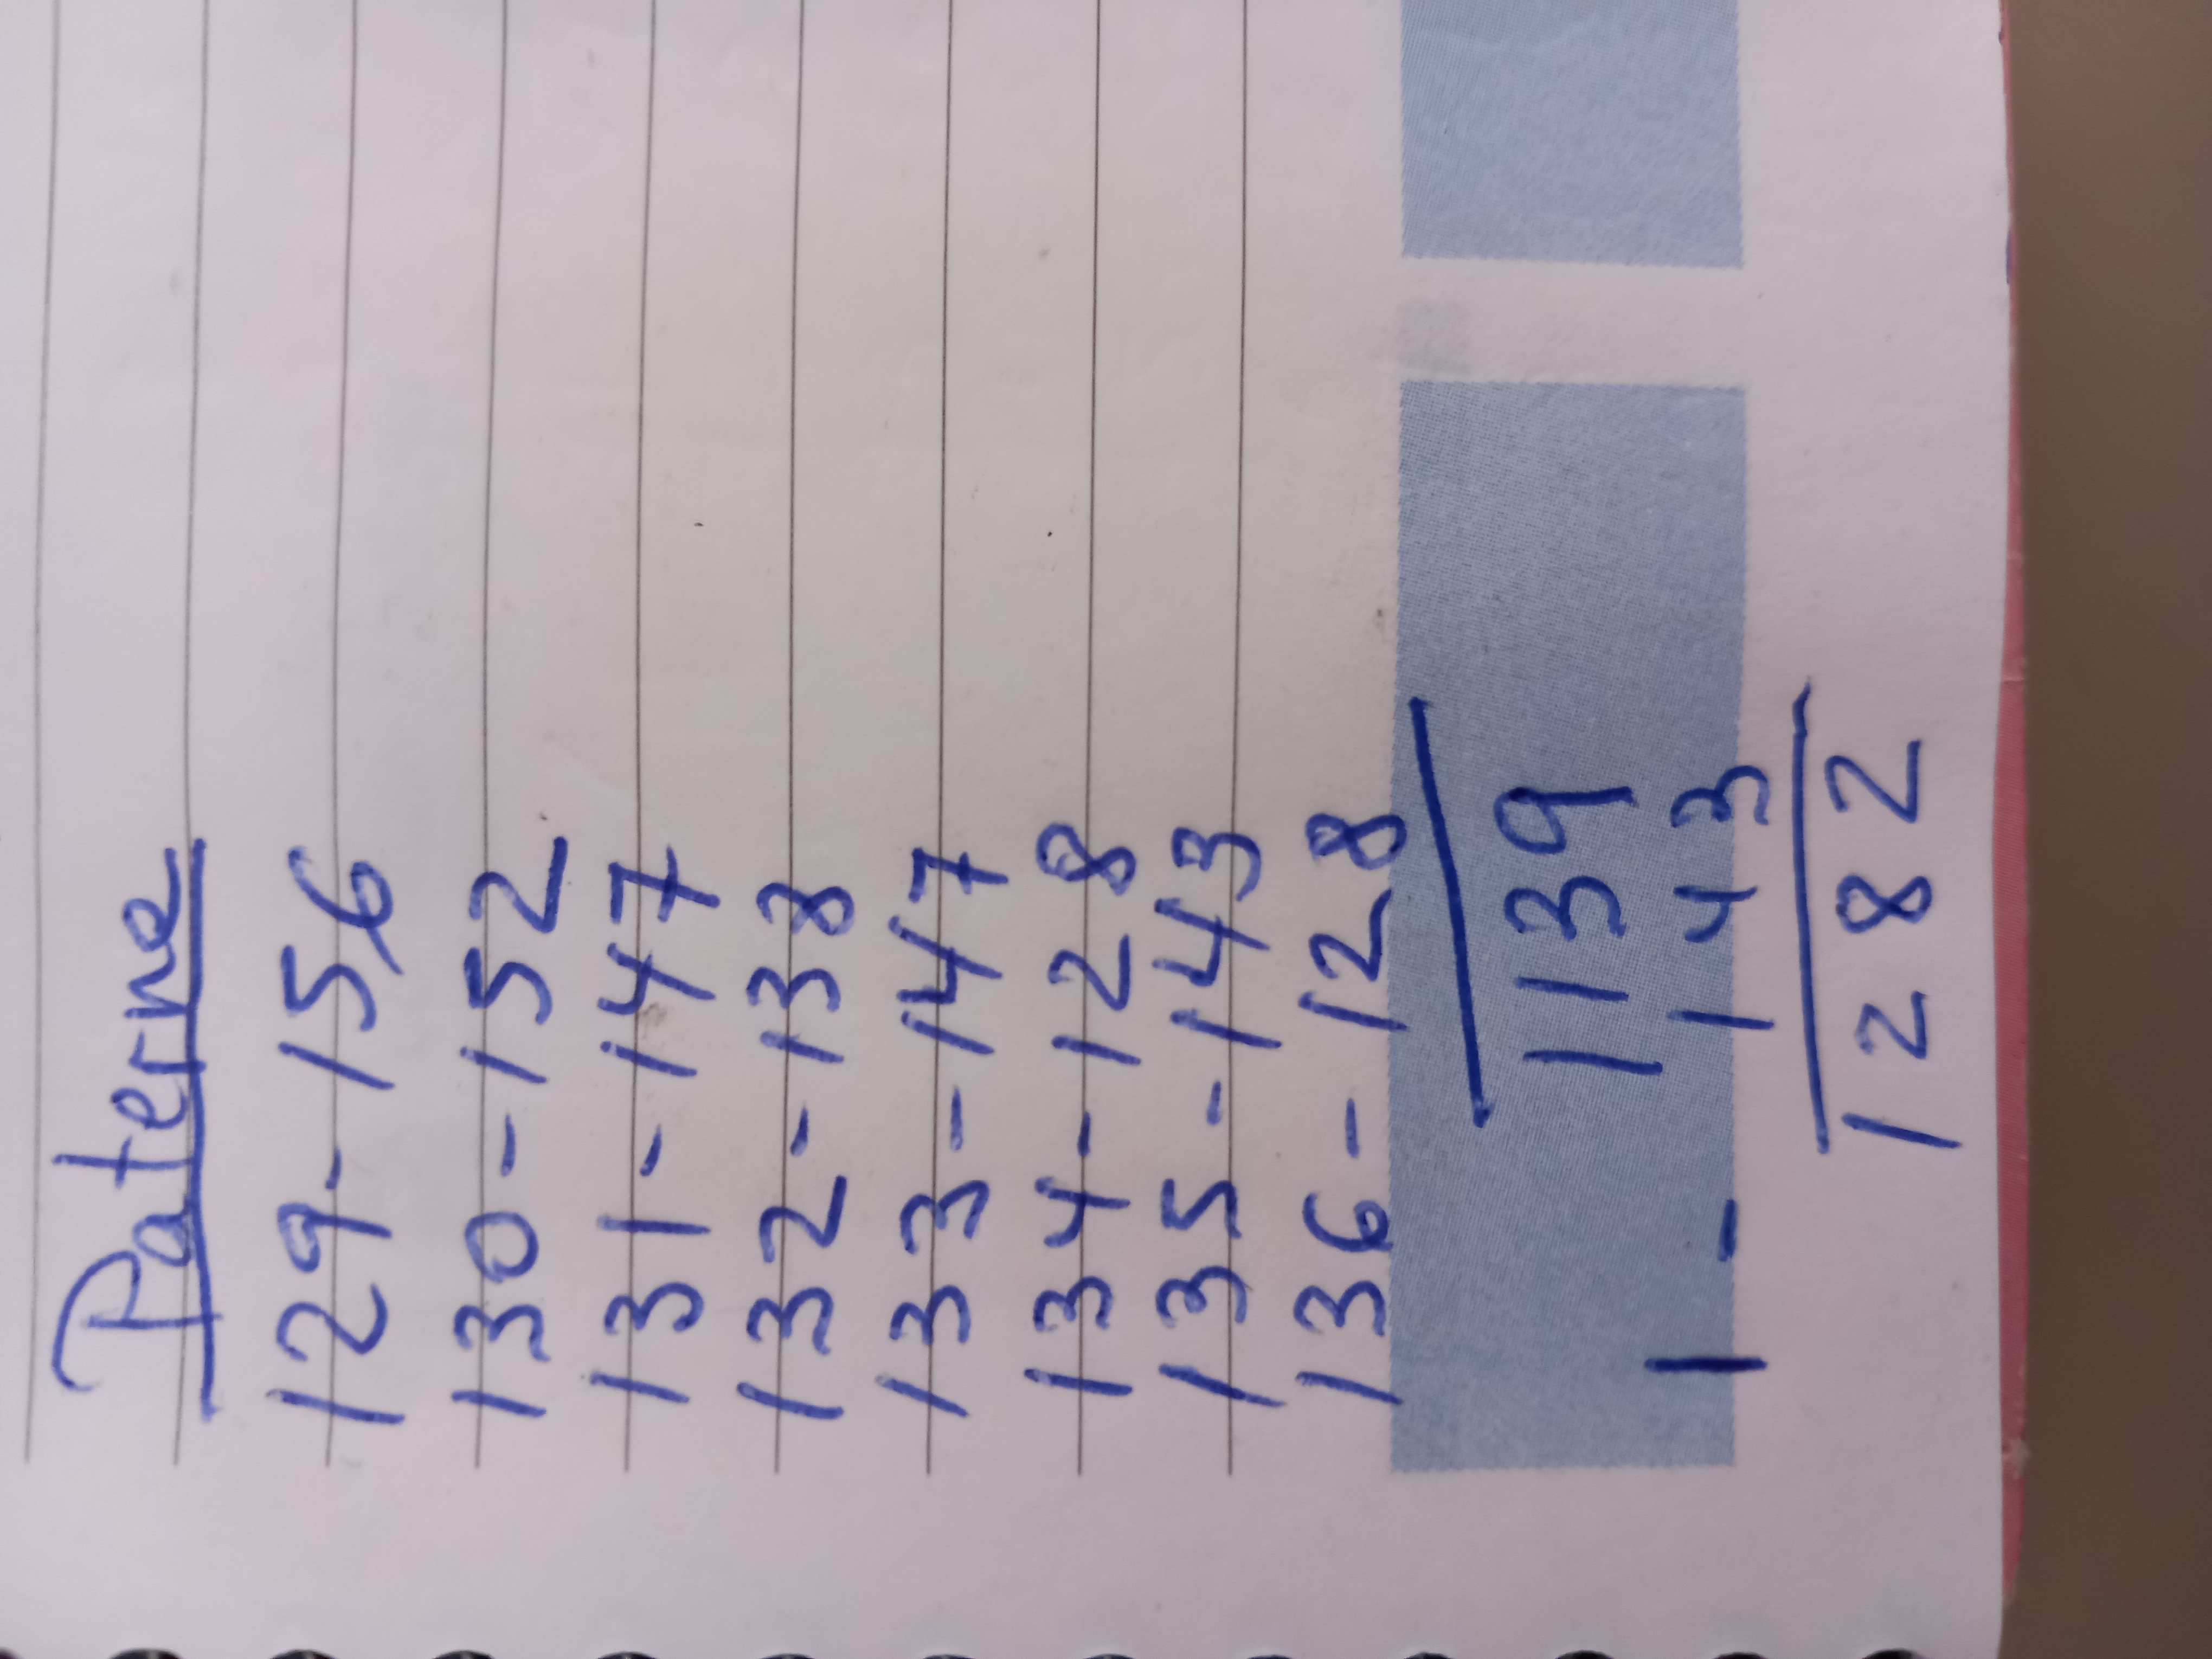 Paterne
129 - 156
130 - 152
131 - 147
132 - 138
133 - 147
134 - 128
135 - 143
136 - 128
1139
1 - 143
1282